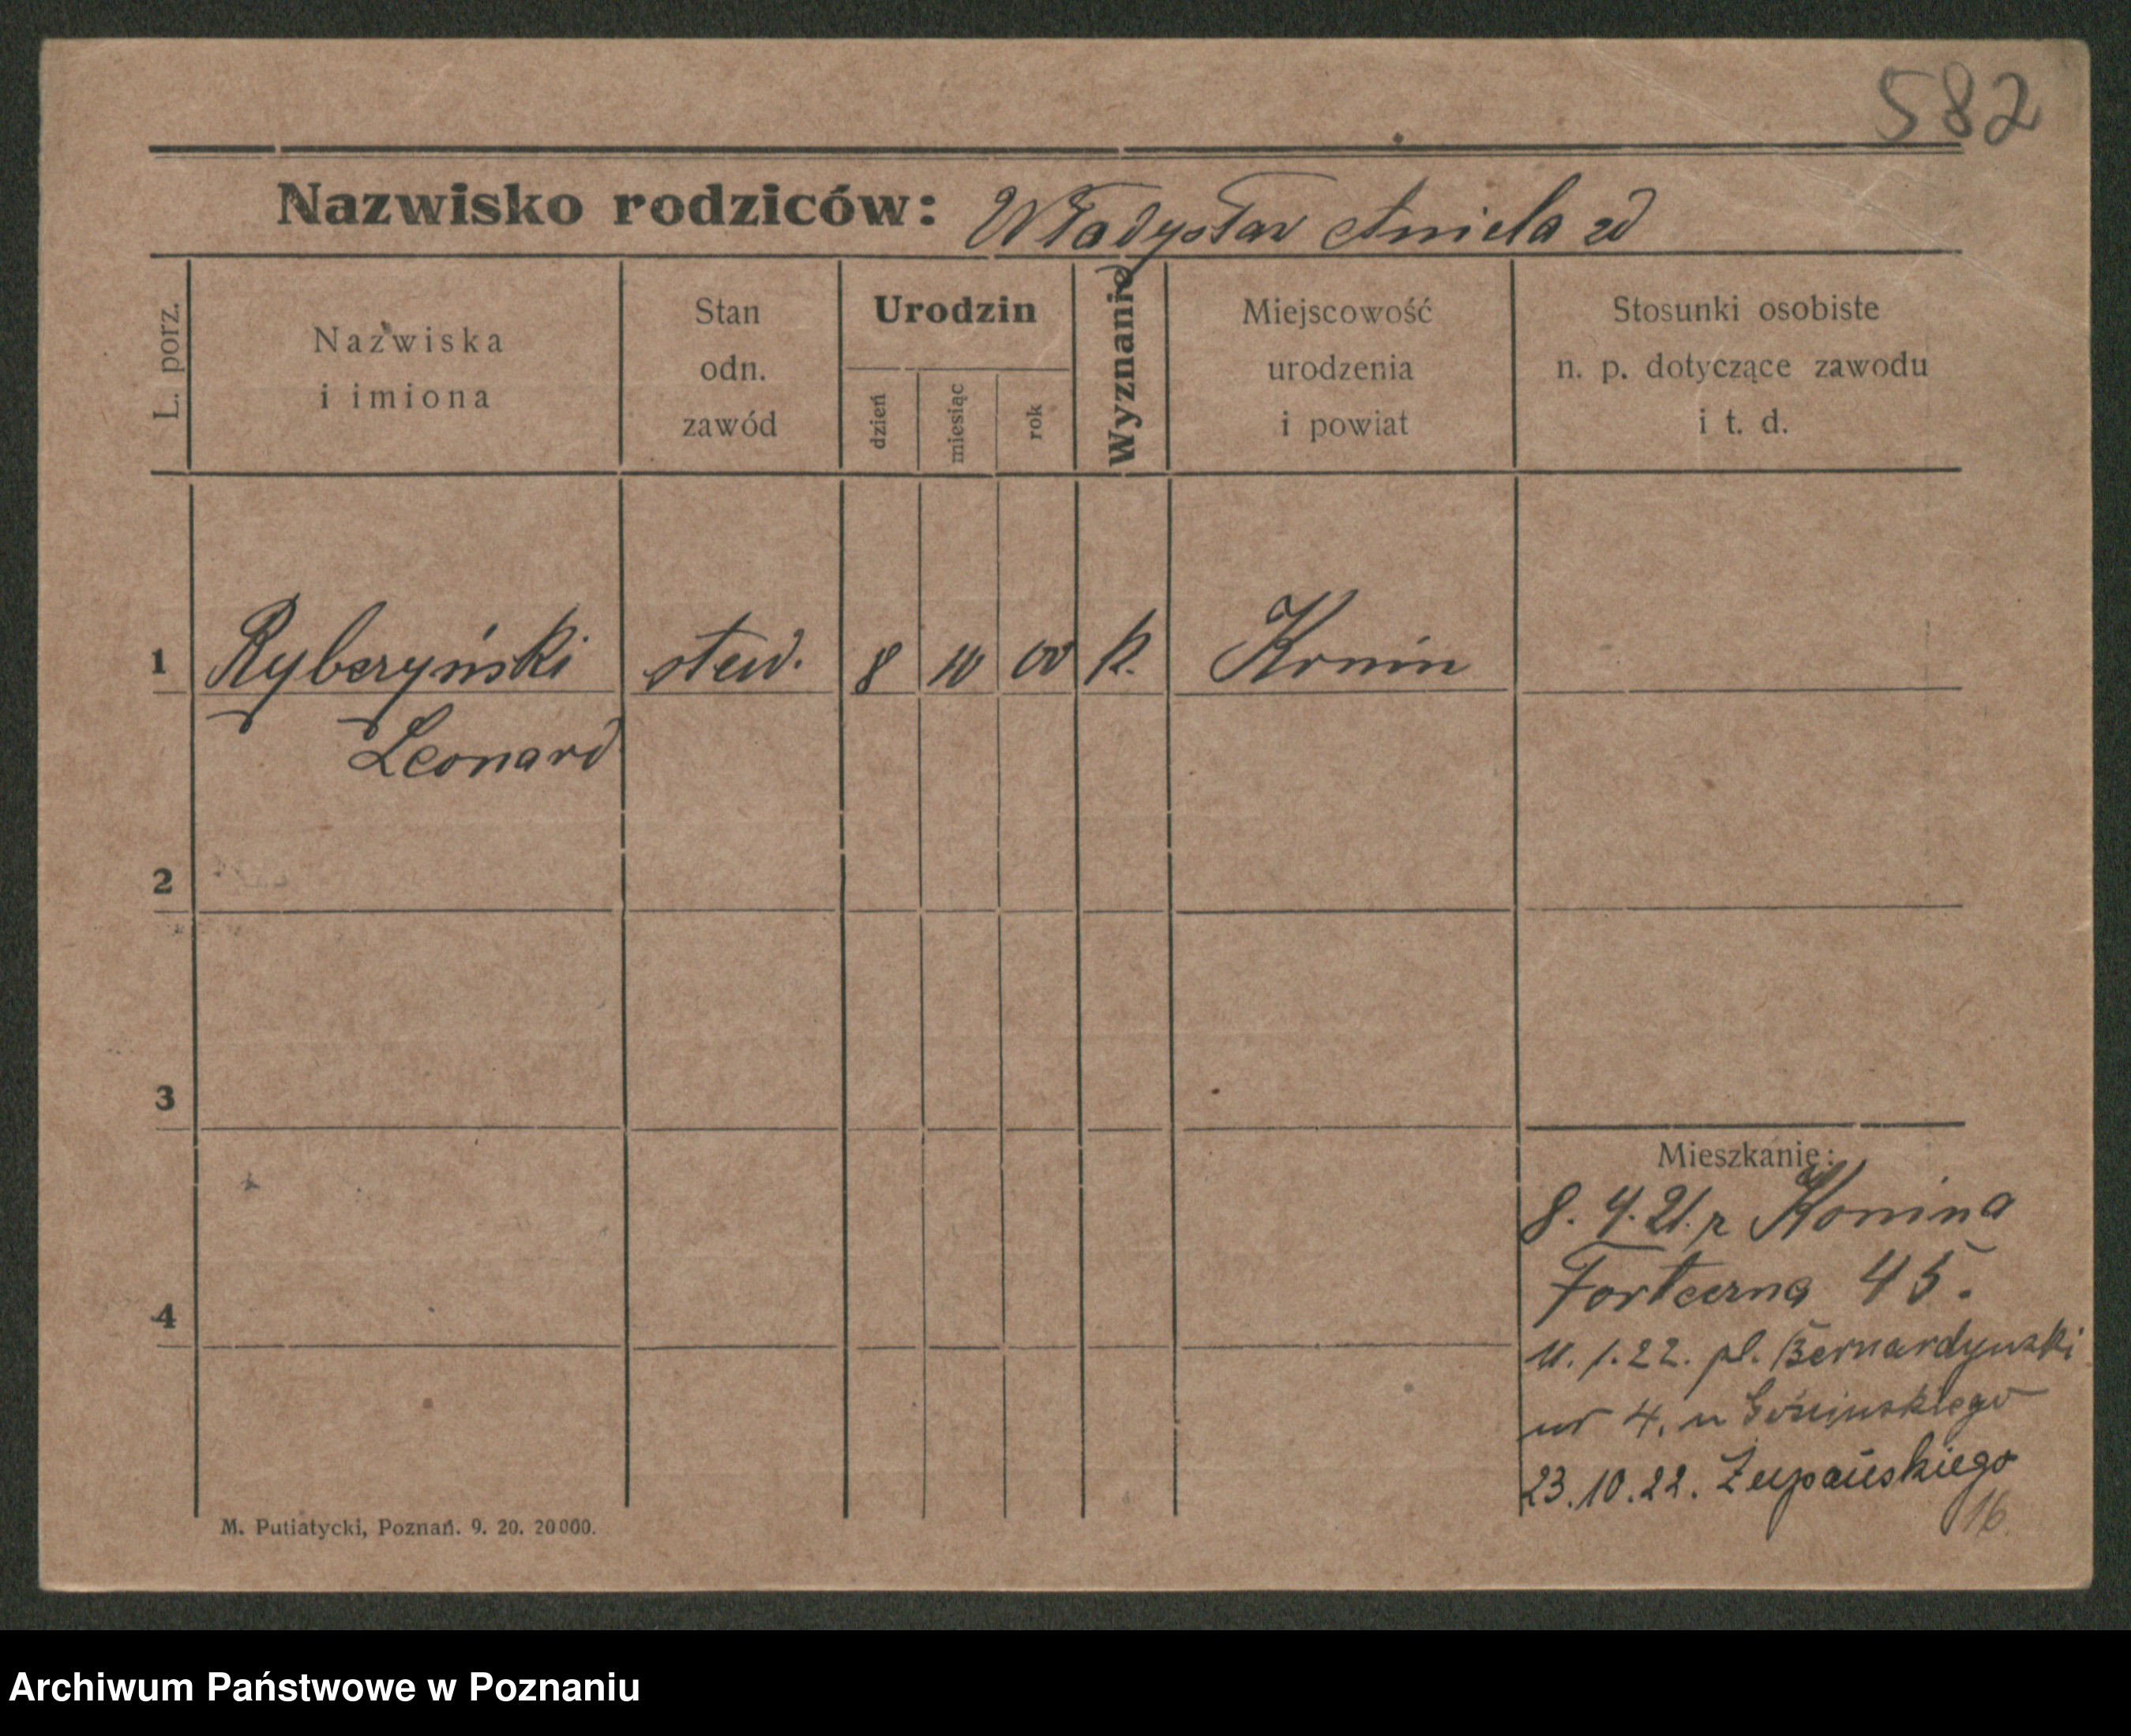 582
Nazwisko rodziców: Władysław Aniela zd
L. porz.
Nazwiska
i imiona
Stan
odn.
zawód
Urodzin
dzień
miesiąc
rok
Wyznanie
Miejscowość
urodzenia
i powiat
Stosunki osobiste
n. p. dotyczące zawodu
i t. d.
1 Ryberzyński stud. 8 10 00 k. Konin
Leonard
2
3
4
Mieszkanie:
8. 4. 21. z Konina
Forteczna 45.
11. 1. 22. pl. Bernardynski
nr 4. u
23. 10. 22. Żupańskiego
16.
M. Putiatycki, Poznań. 9. 20. 20000.
Archiwum Państwowe w Poznaniu